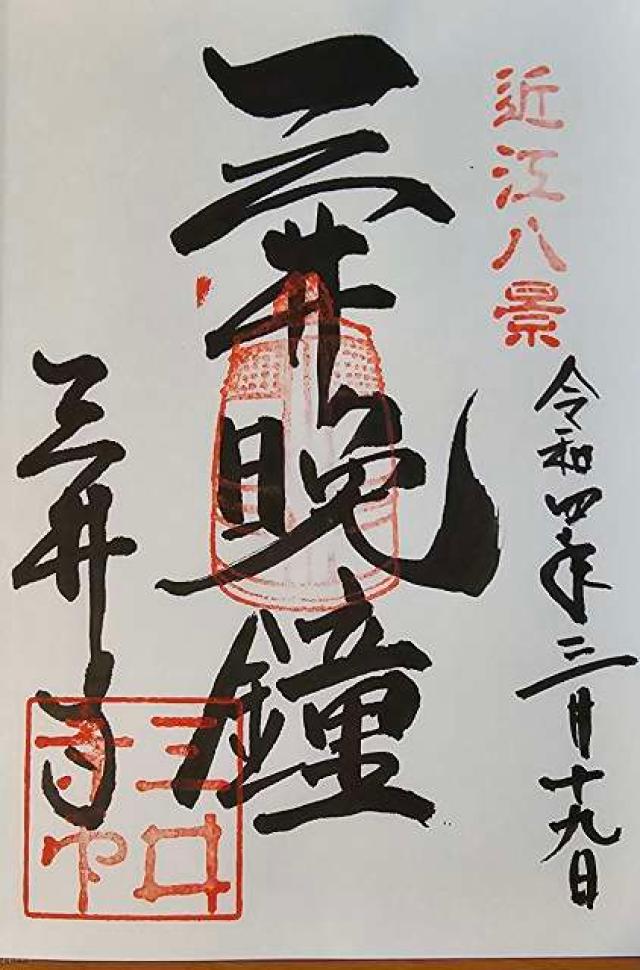 近江八景
令和四年三月十九日
三井晩鐘
三井寺
三井
寺印